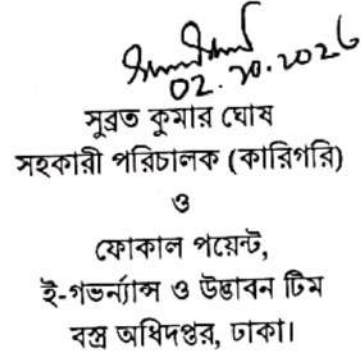 02.10.2026
সুব্রত কুমার ঘোষ
সহকারী পরিচালক (কারিগরি)
ও
ফোকাল পয়েন্ট,
ই-গভর্ন্যান্স ও উদ্ভাবন টিম
বস্ত্র অধিদপ্তর, ঢাকা।